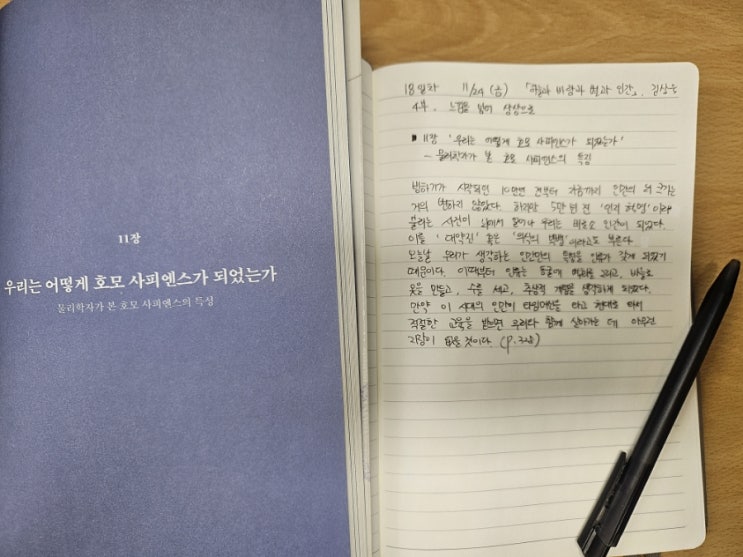 11장
우리는 어떻게 호모 사피엔스가 되었는가
물리학자가 본 호모 사피엔스의 특성
18일차 11/24 (금) 「하늘과 바람과 별과 인간」, 김상욱
4부. 느낌을 넘어 상상으로
■ 11장 '우리는 어떻게 호모 사피엔스가 되었는가'
- 물리학자가 본 호모 사피엔스의 특징
빙하기가 시작된 10만년 전부터 지금까지 인간의 뇌 크기는
거의 변하지 않았다. 하지만 5만 년 전 '인지 혁명'이라
불리는 사건이 뇌에서 일어나 우리는 비로소 인간이 되었다.
이를 '대약진' 혹은 '의식의 빅뱅'이라고도 부른다.
오늘날 우리가 생각하는 인간만의 특징을 인류가 갖게 되었기
때문이다. 이때부터 인류는 동굴에 벽화를 그리고, 바늘로
옷을 만들고, 수를 세고, 추상적 개념을 생각하게 되었다.
만약 이 시대의 인간이 타임머신을 타고 현대로 와서
적절한 교육을 받으면 우리와 함께 살아가는 데 아무런
지장이 없을 것이다. (p.328)